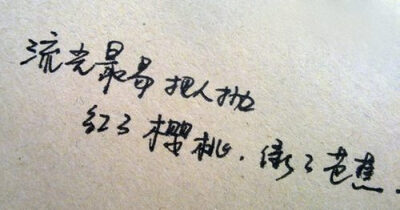 流光最易把人抛
红了樱桃.绿了芭蕉.